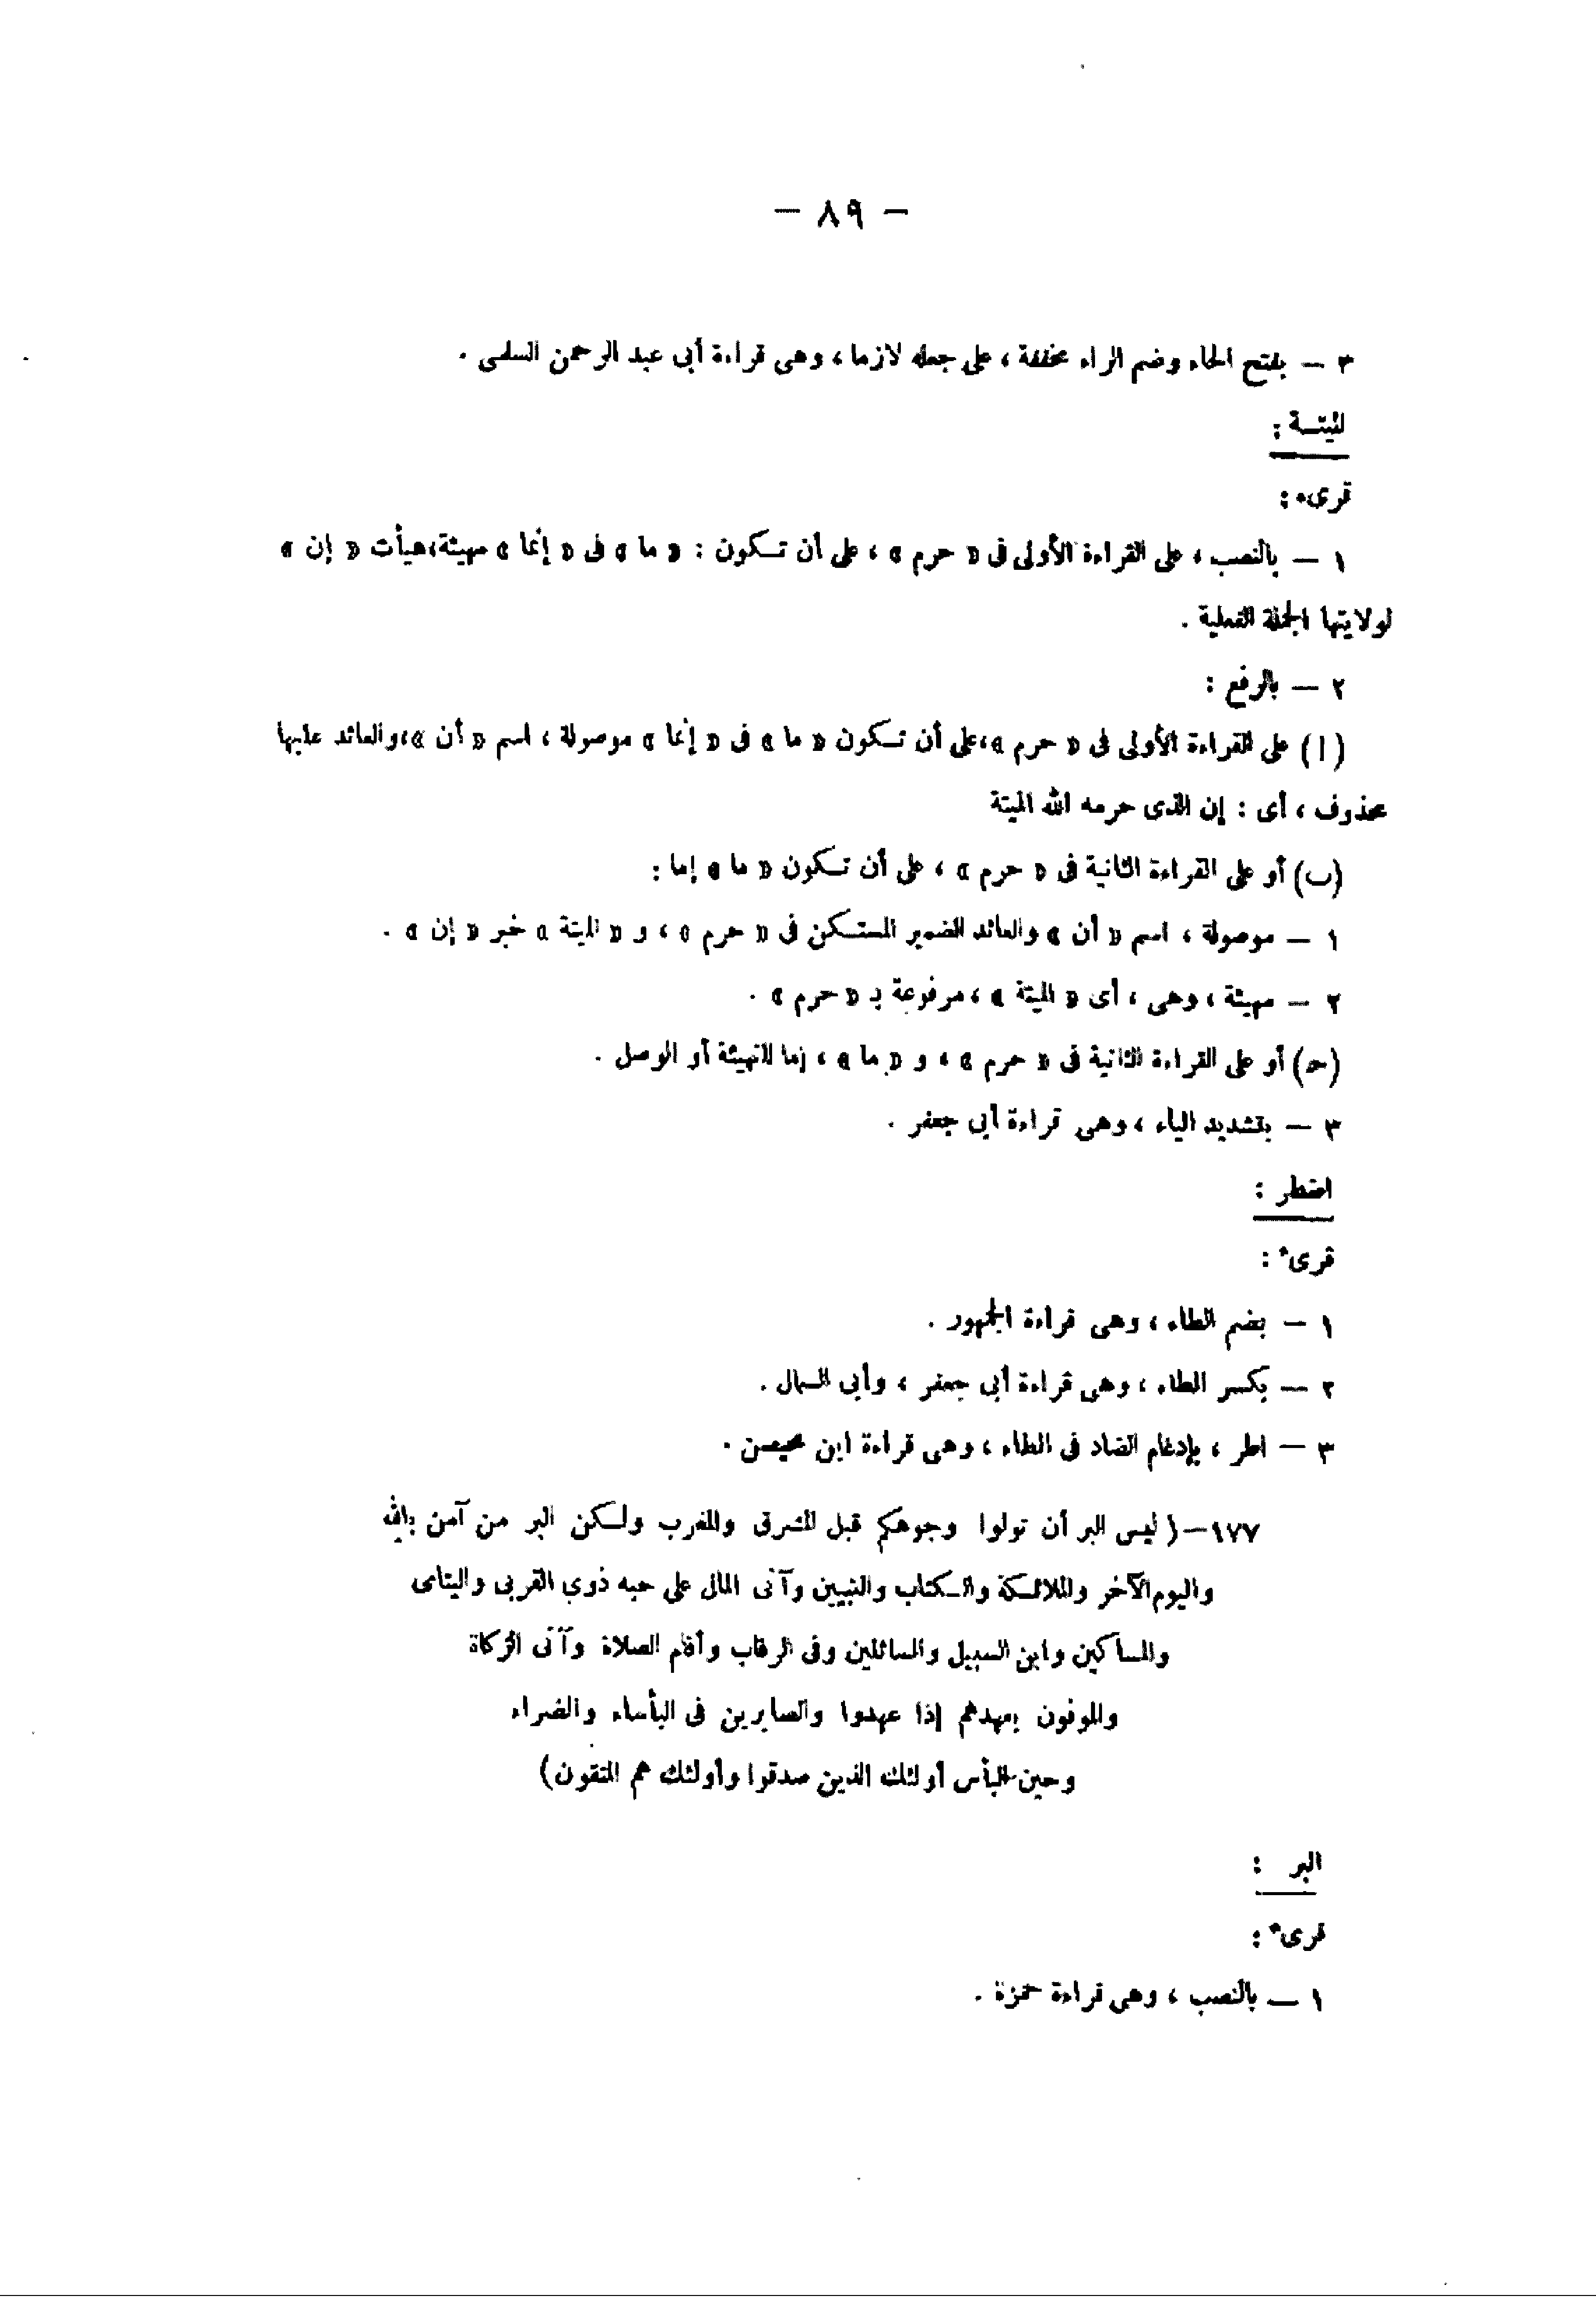 — ٨٩ —
٣ — بفتح الحاء وضم الراء مخففة ، على جعله لازما ، وهى قراءة أبى عبد الرحمن السلمى .
الميتة :
قرىء :
١ — بالنصب ، على القراءة الأولى فى « حرم » ، على أن تكون : « ما » فى « إنما » مهيئة،هيأت « إن »
لولايتها الجملة الفعلية .
٢ — بالرفع :
(ا) على القراءة الأولى فى « حرم »،على أن تكون « ما » فى « إنما » موصولة ، اسم « أن »،والعائد عليها
محذوف ، أى : إن الذى حرمه الله الميتة
(ب) أو على القراءة الثانية فى « حرم » ، على أن تكون « ما » إما :
١ — موصولة ، اسم « أن » والعائد الضمير المستكن فى « حرم » ، و « الميتة » خبر « إن » .
٢ — مهيئة ، وهى ، أى « الميتة » ،مرفوعة بـ « حرم » .
(حـ) أو على القراءة الثانية فى « حرم » ، و « ما » ، إما للتهيئة أو الوصل .
٣ — بتشديد الياء ، وهى قراءة أبى جعفر .
اضطر :
قرىء :
١ — بضم الطاء ، وهى قراءة الجمهور .
٢ — بكسر الطاء ، وهى قراءة أبى جعفر ، وأبى السمال .
٣ — اطر ، بإدغام الضاد فى الطاء ، وهى قراءة ابن محيصن .
١٧٧—( ليس البر أن تولوا وجوهكم قبل المشرق والمغرب ولكن البر من آمن بالله
واليوم الآخر والملائكة والكتاب والنبيين وآتى المال على حبه ذوى القربى واليتامى
والمساكين وابن السبيل والسائلين وفى الرقاب وأقام الصلاة وآتى الزكاة
والموفون بعهدهم إذا عهدوا والصابرين فى البأساء والضراء
وحين البأس أولئك الذين صدقوا وأولئك هم المتقون)
البر :
قرىء :
١ — بالنصب ، وهى قراءة حمزة .